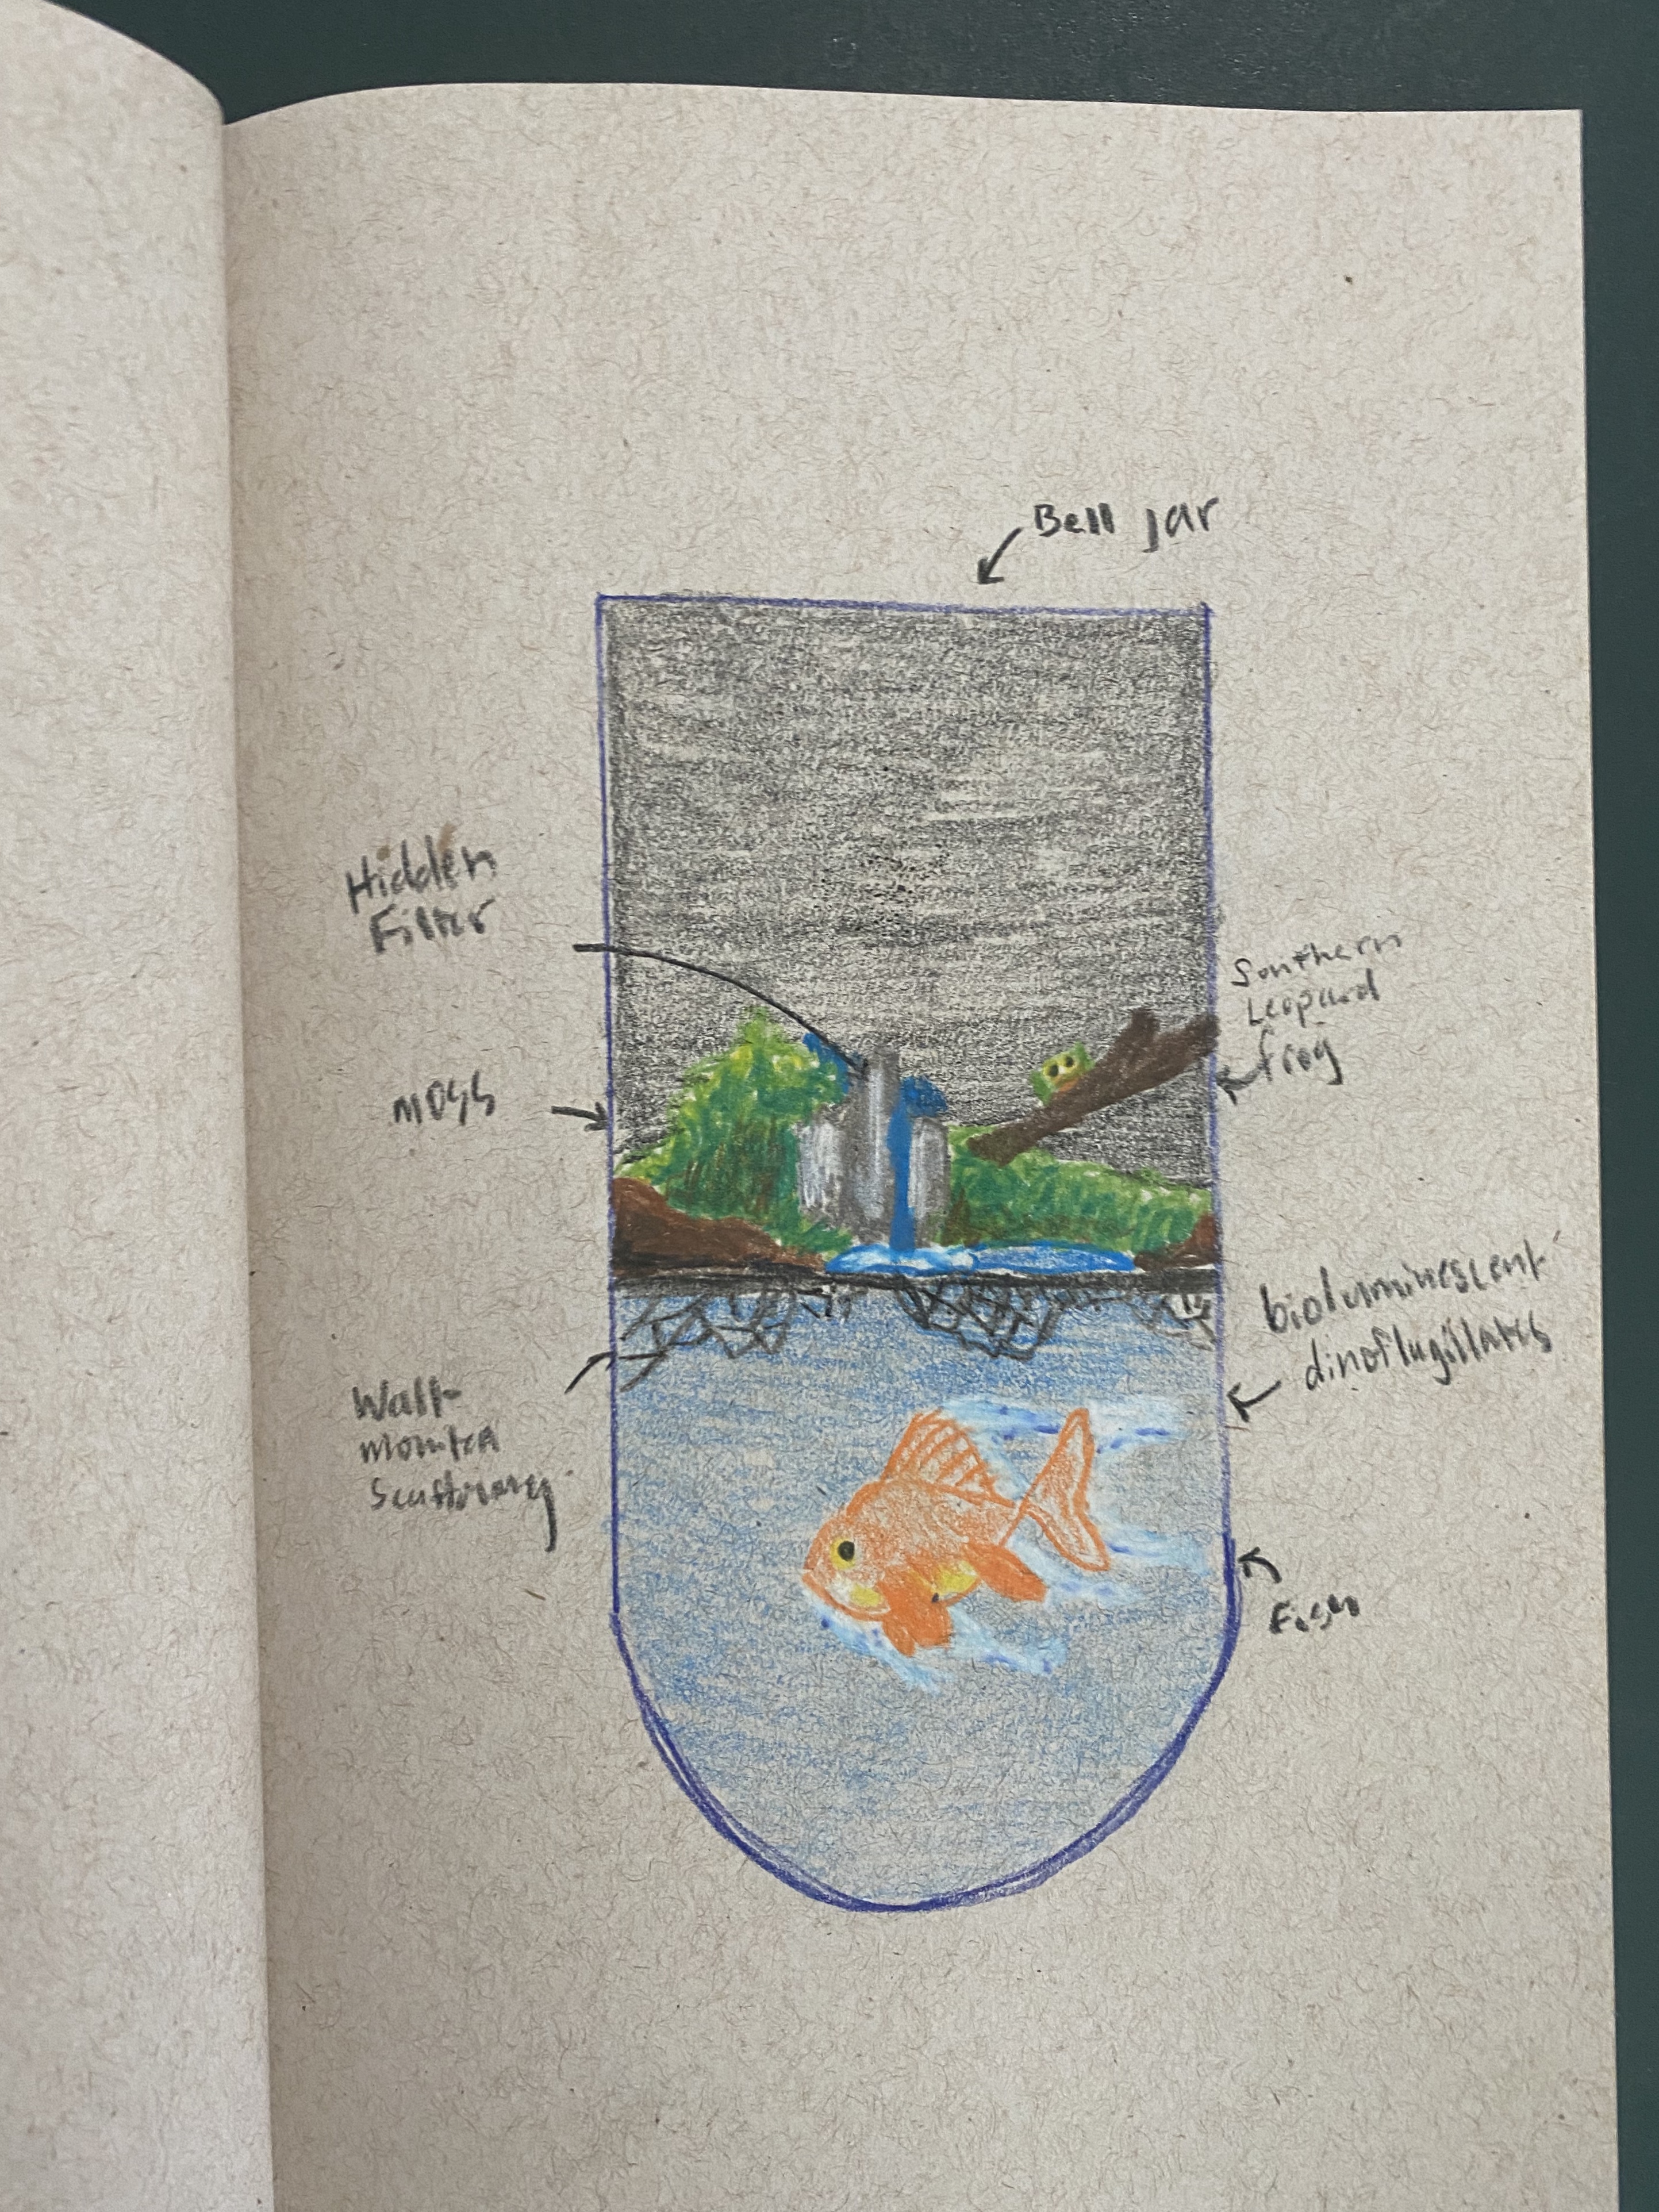 Bell jar
Hidden
Filter
Southern
Leopard
frog
moss
bioluminescent
dinoflugillates
Wall-
Fish